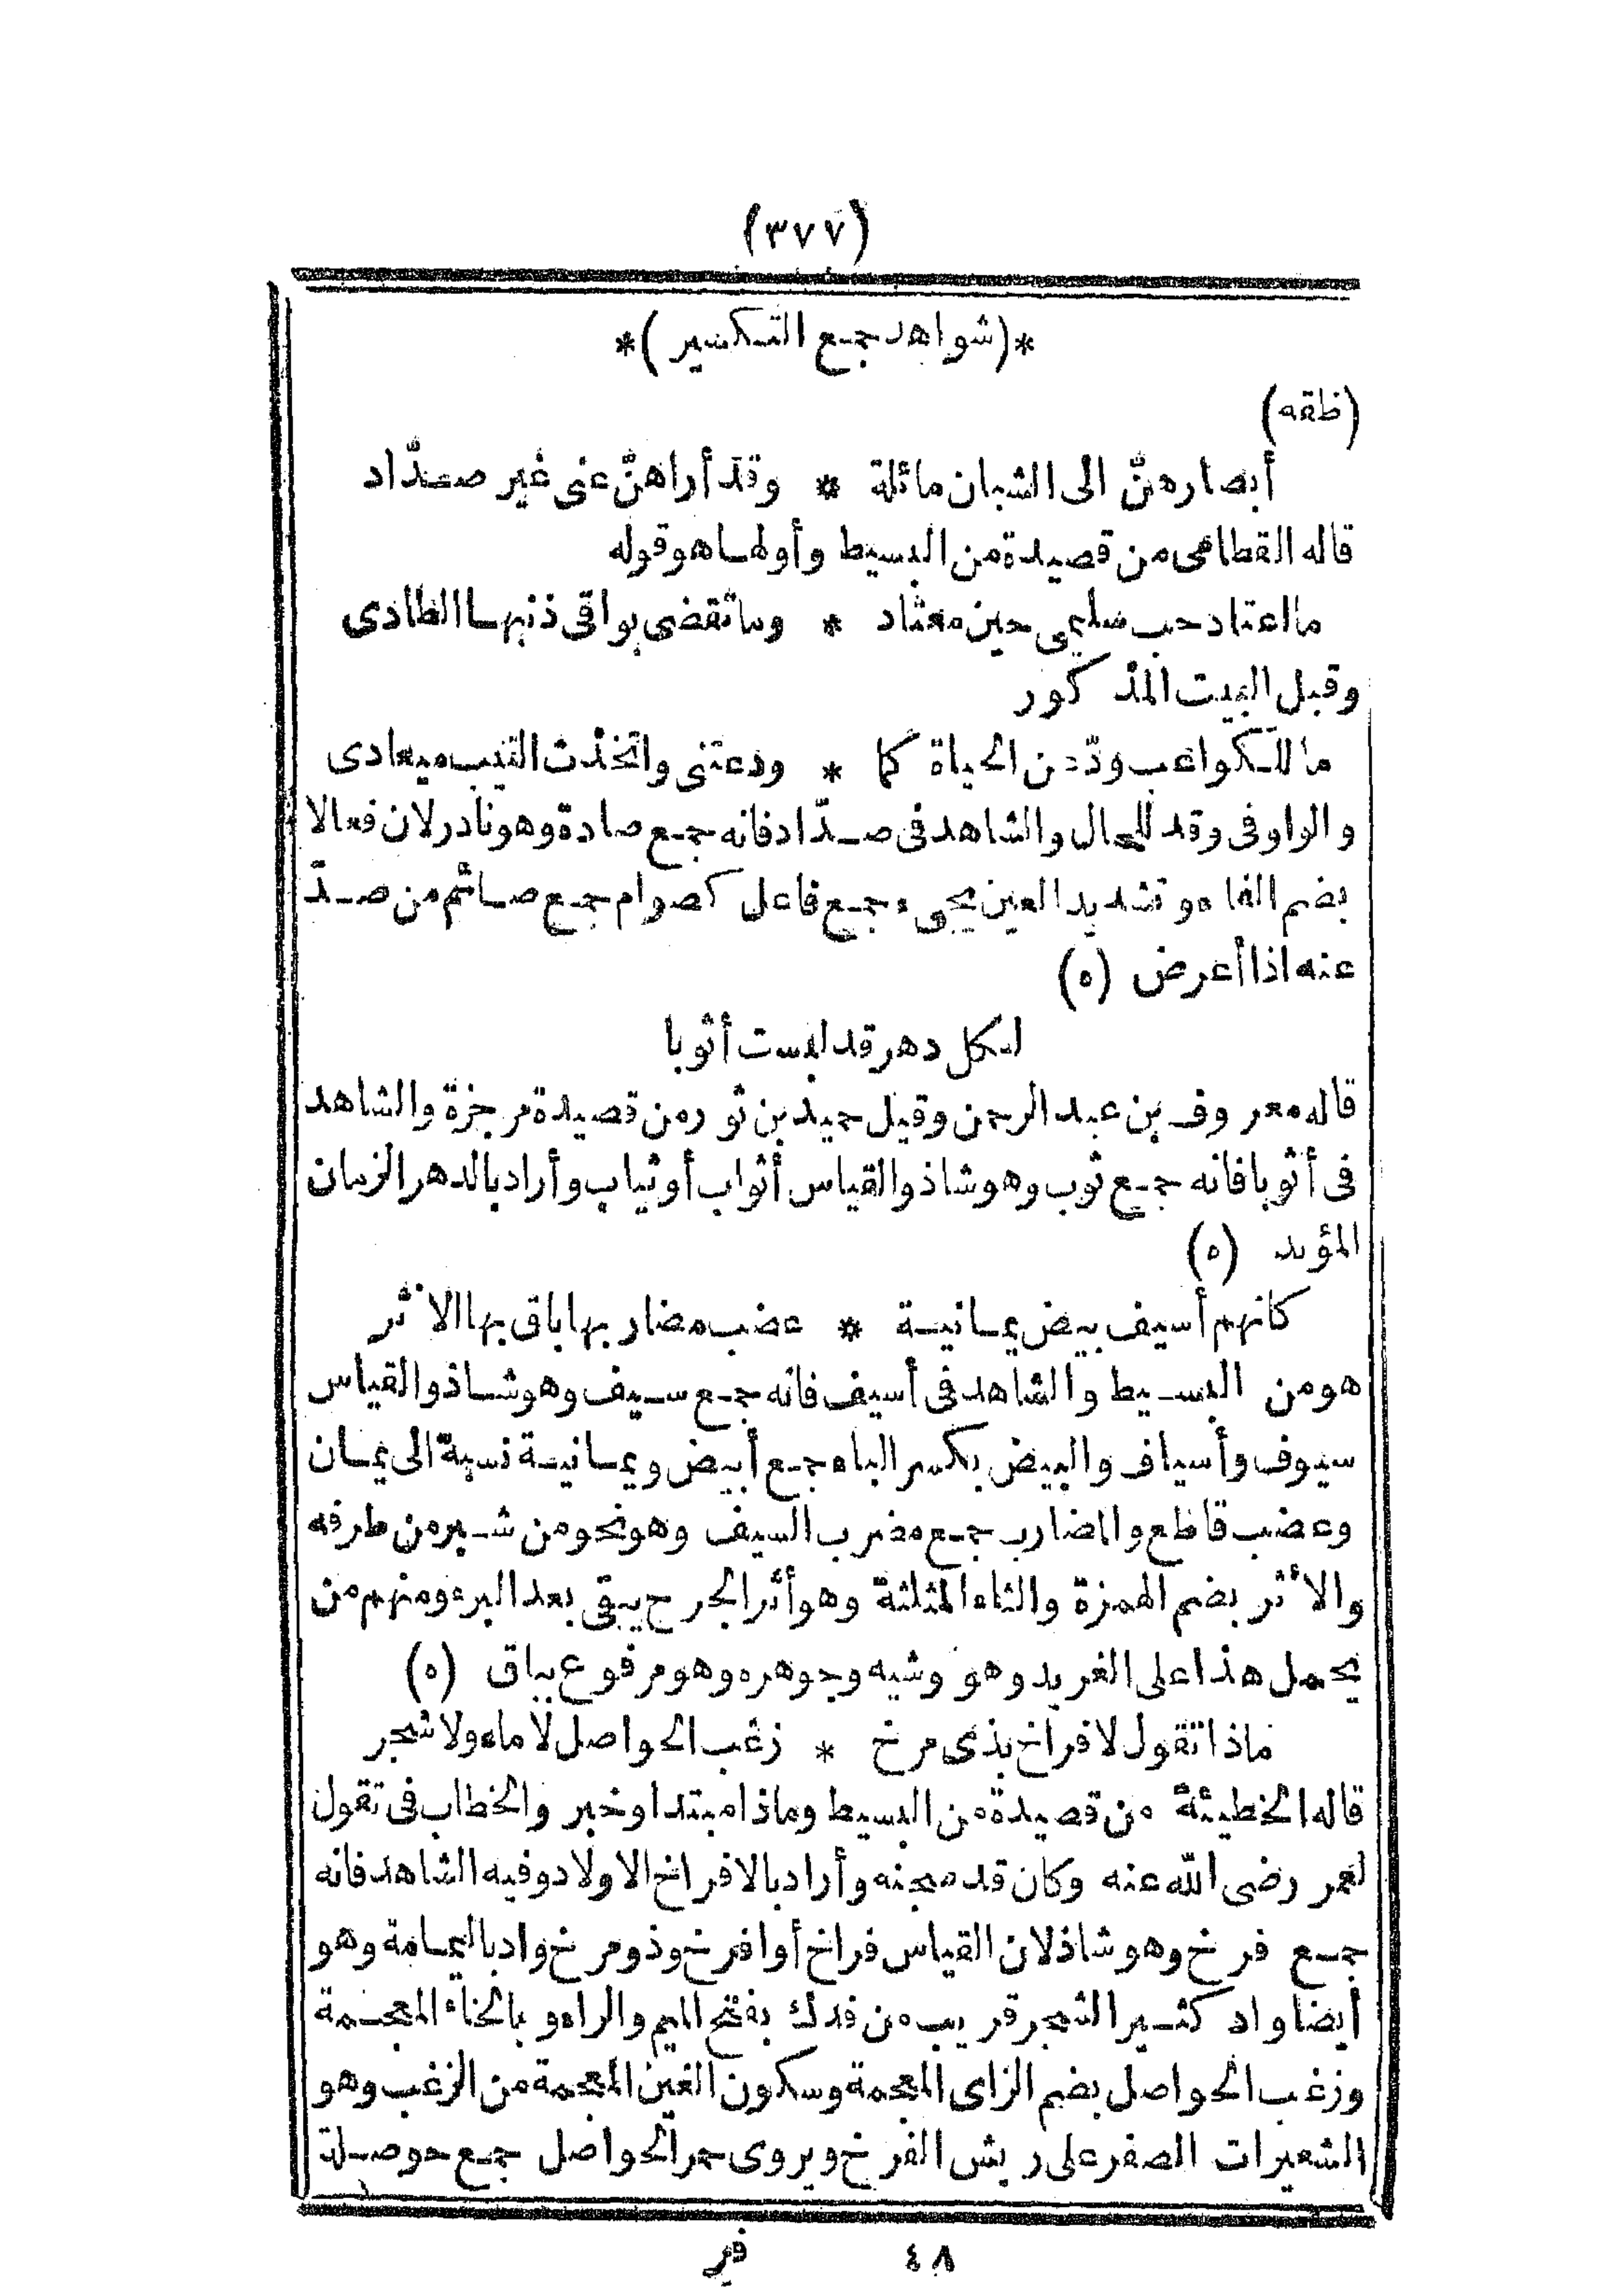 (٣٧٧)
*(شواهد جمع التكسير)*
(ظقه)
أبصارهنّ الى الشبان مائلة * وقد أراهنّ عنى غير صدّاد
قاله القطامى من قصيدة من البسيط وأولها هو قوله
ما اعتاد حب سليمى حين معتاد * وما تقضى بواقى ذنبها الطادى
وقبل البيت المذكور
ما للكواعب ودّعن الحياة كما * ودعتنى واتخذن الشيب ميعادى
والواو فى وقد للحال والشاهد فى صدّاد فانه جمع صادة وهو نادر لان فعالا
بضم الفاء وتشديد العين يجىء جمع فاعل كصوام جمع صائم من صدّ
عنه اذا أعرض (ه)
لكل دهر قد لبست أثوبا
قاله معروف بن عبد الرحمن وقيل حميد بن ثور من قصيدة مرجزة والشاهد
فى أثوبا فانه جمع ثوب وهو شاذ والقياس أثواب أو ثياب وأراد بالدهر الزمان
المؤبد (ه)
كانهم أسيف بيض يمانية * عضب مضاربها باق بها الاثر
هو من البسيط والشاهد فى أسيف فانه جمع سيف وهو شاذ والقياس
سيوف وأسياف والبيض بكسر الباء جمع أبيض ويمانية نسبة الى يمان
وعضب قاطع والمضارب جمع مضرب السيف وهو نحو من شبر من طرفه
والاثر بضم الهمزة والثاء المثلثة وهو أثر الجرح يبقى بعد البرء ومنهم من
يحمل هذا على الفريد وهو وشيه وجوهره وهو مرفوع بباق (ه)
ماذا تقول لافراخ بذى مرخ * زغب الحواصل لا ماء ولا شجر
قاله الحطيئة من قصيدة من البسيط وماذا مبتدا وخبر والخطاب فى تقول
لعمر رضى الله عنه وكان قد سجنه وأراد بالافراخ الاولاد وفيه الشاهد فانه
جمع فرخ وهو شاذ لان القياس فراخ أو افرخ وذو مرخ واد باليمامة وهو
أيضا واد كثير الشجر قريب من فدك بفتح الميم والراء وبالخاء المعجمة
وزغب الحواصل بضم الزاى المعجمة وسكون الغين المعجمة من الزغب وهو
الشعيرات الصفر على ريش الفرخ ويروى حمر الحواصل جمع حوصلة
٤٨ فر